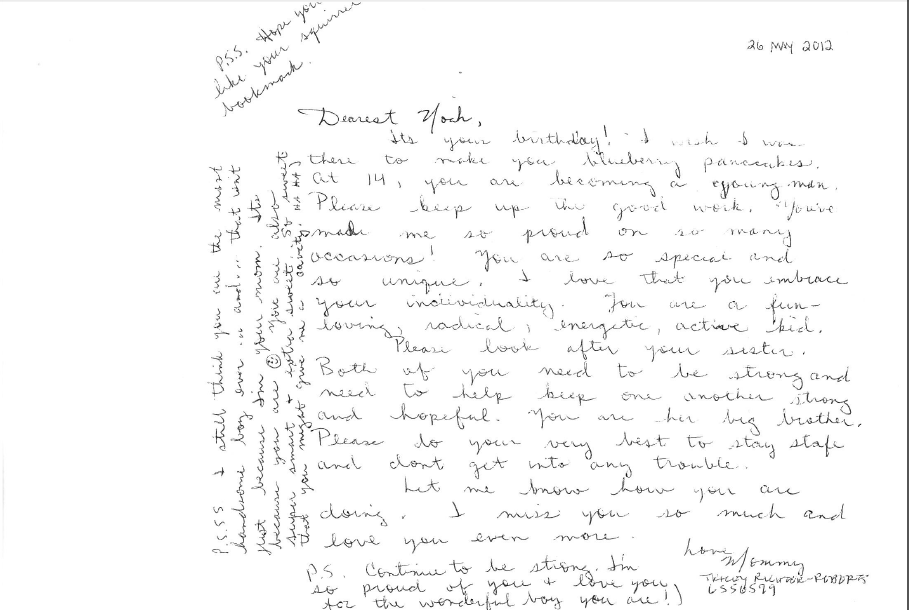 26 MAY 2012
Dearest Noah,
Its your birthday! I wish I was
there to make you blueberry pancakes.
At 14, you are becoming a young man.
Please keep up the good work. You've
made me so proud on so many
occasions! You are so special and
so unique. I love that you embrace
your individuality. You are a fun-
loving, radical, energetic, active kid.
Please look after your sister.
Both of you need to be strong and
need to help keep one another strong
and hopeful. You are her big brother.
Please do your very best to stay safe
and dont get into any trouble.
Let me know how you are
doing. I miss you so much and
love you even more.
Love
Mommy
6556599
P.S. Continue to be strong. Im
so proud of you + love you
for the wonderful boy you are!)
P.S.S. Hope you
like your squirrel
bookmark.
P.S.S.S I still think you are the most
handsome boy ever .. and... that isnt
just because Im your mom. Its
because you are ☺ You are also
super smart + extra sweet. So sweet
that you might give me a cavity. HA HA)